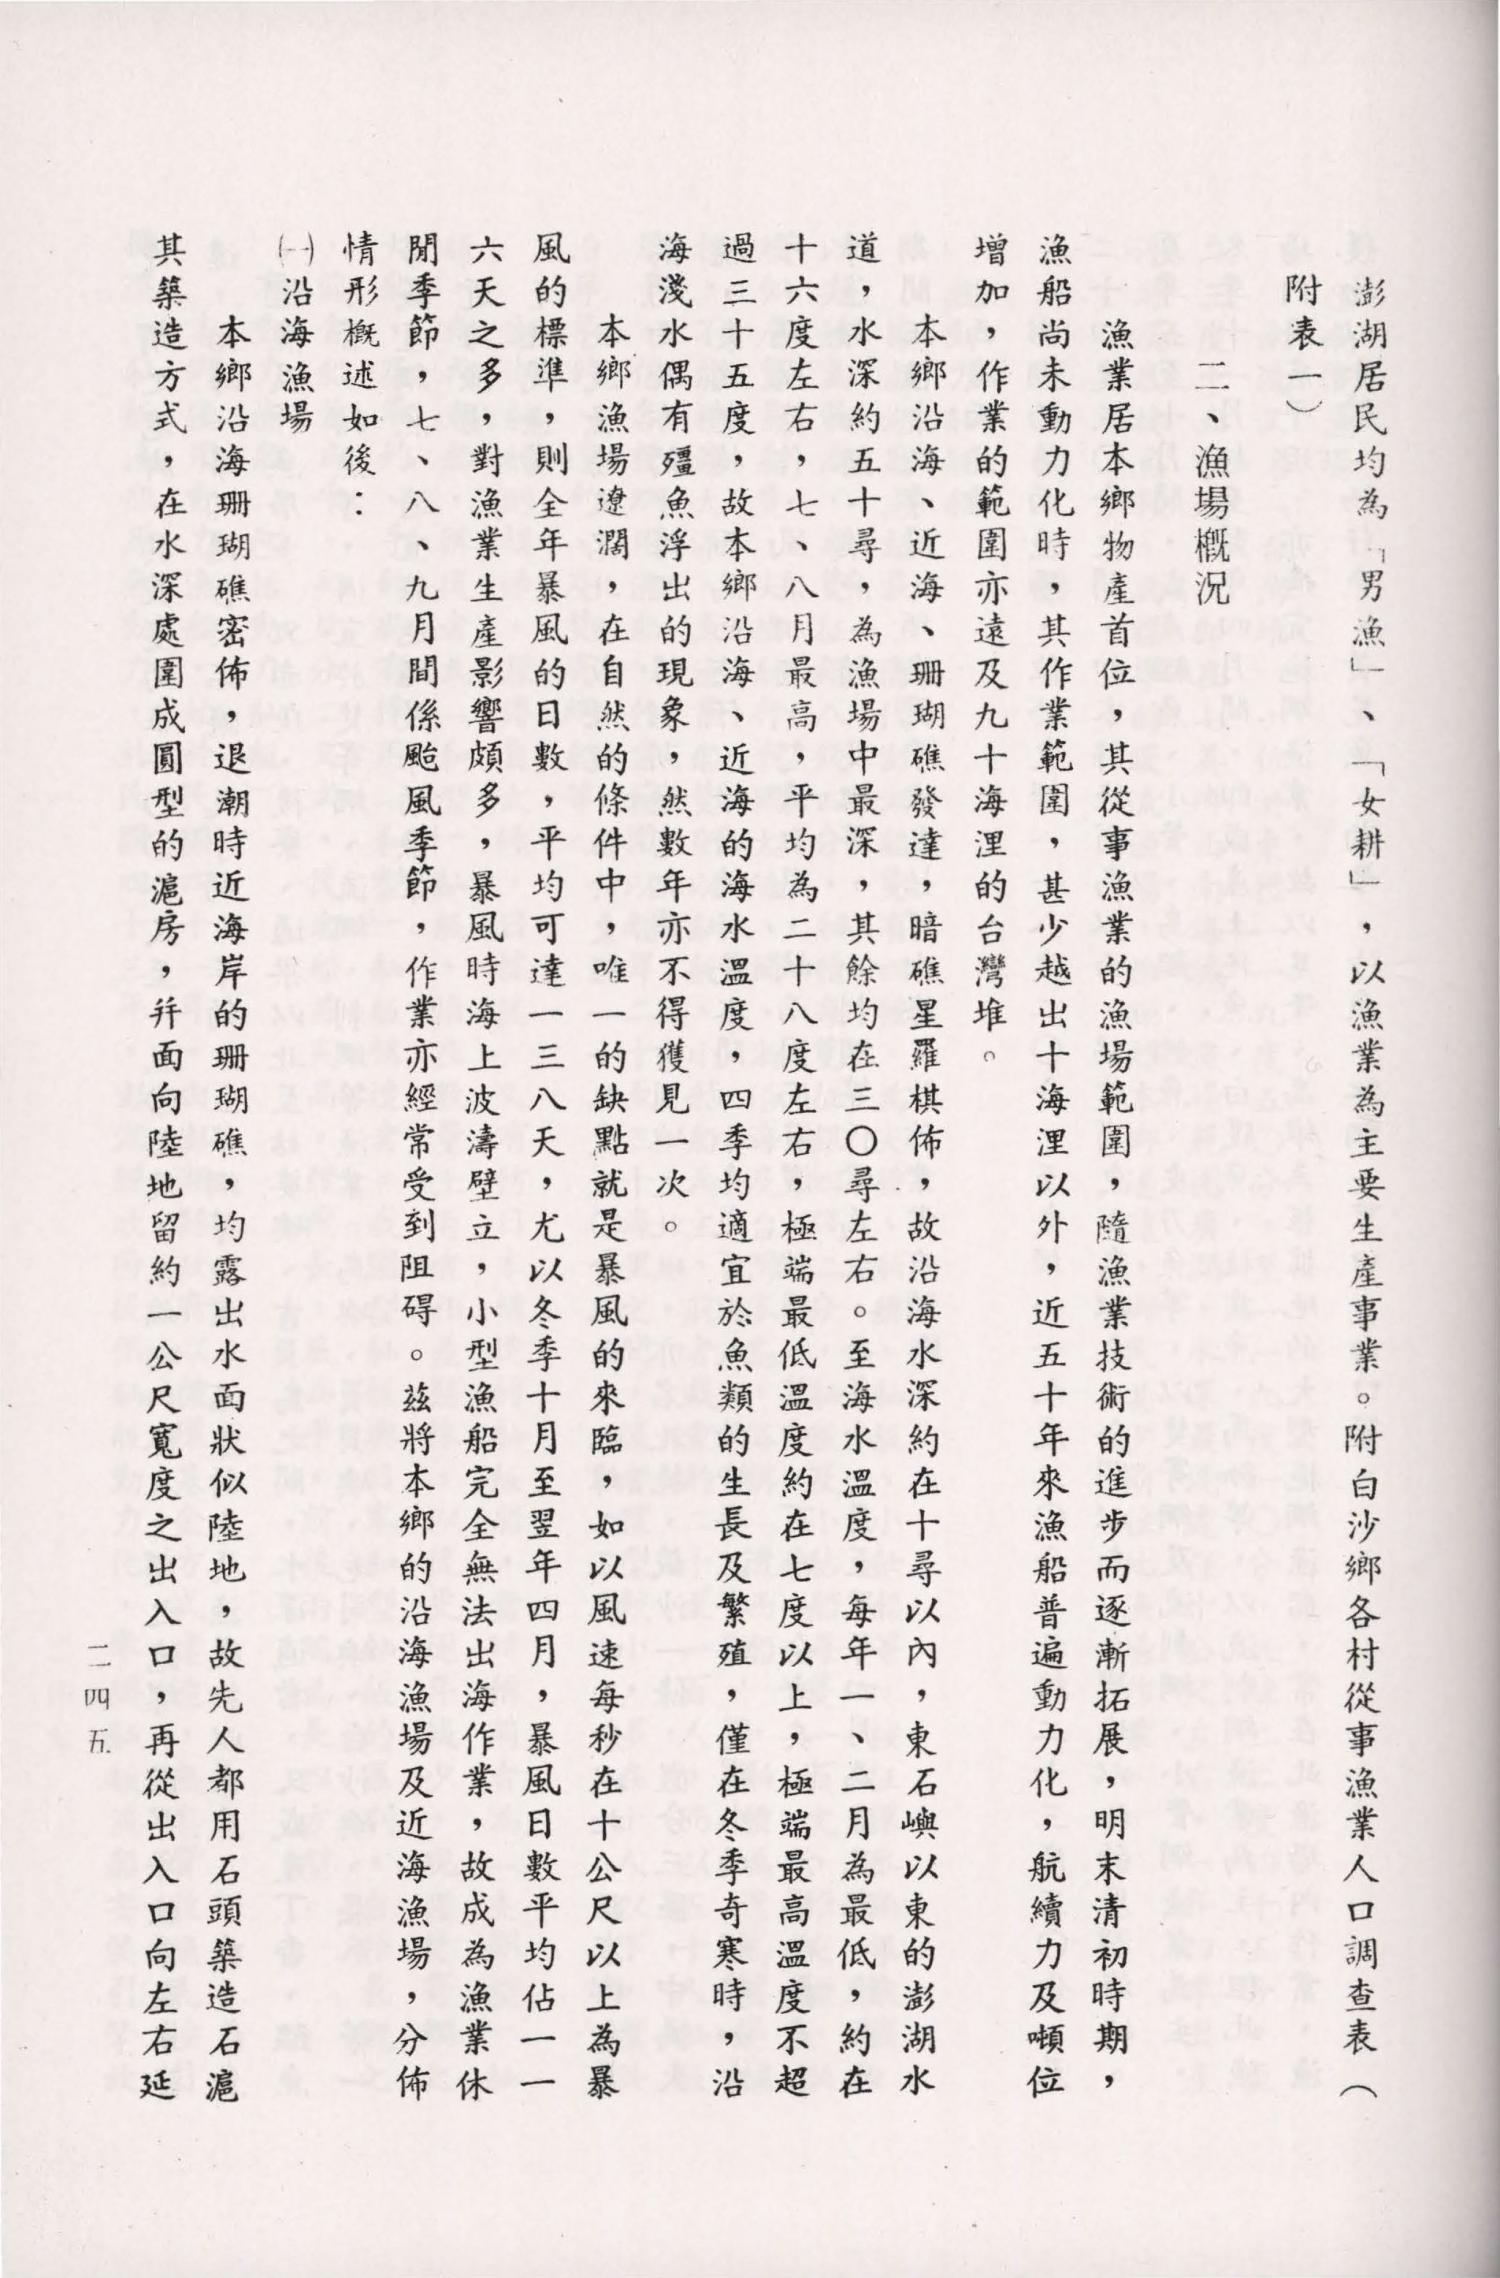 澎湖居民均為「男漁」、「女耕」，以漁業為主要生產事業。附白沙鄉各村從事漁業人口調查表（
附表一）
二、漁場概況
漁業居本鄉物產首位，其從事漁業的漁場範圍，隨漁業技術的進步而逐漸拓展，明末清初時期，
漁船尚未動力化時，其作業範圍，甚少越出十海浬以外，近五十年來漁船普遍動力化，航續力及噸位
增加，作業的範圍亦遠及九十海浬的台灣堆。
本鄉沿海、近海、珊瑚礁發達，暗礁星羅棋佈，故沿海水深約在十尋以內，東石嶼以東的澎湖水
道，水深約五十尋，為漁場中最深，其餘均在三〇尋左右。至海水溫度，每年一、二月為最低，約在
十六度左右，七、八月最高，平均為二十八度左右，極端最低溫度約在七度以上，極端最高溫度不超
過三十五度，故本鄉沿海、近海的海水溫度，四季均適宜於魚類的生長及繁殖，僅在冬季奇寒時，沿
海淺水偶有殭魚浮出的現象，然數年亦不得獲見一次。
本鄉漁場遼濶，在自然的條件中，唯一的缺點就是暴風的來臨，如以風速每秒在十公尺以上為暴
風的標準，則全年暴風的日數，平均可達一三八天，尤以冬季十月至翌年四月，暴風日數平均佔一一
六天之多，對漁業生產影響頗多，暴風時海上波濤壁立，小型漁船完全無法出海作業，故成為漁業休
閒季節，七、八、九月間係颱風季節，作業亦經常受到阻碍。茲將本鄉的沿海漁場及近海漁場，分佈
情形概述如後：
㈠沿海漁場
本鄉沿海珊瑚礁密佈，退潮時近海岸的珊瑚礁，均露出水面狀似陸地，故先人都用石頭築造石滬
其築造方式，在水深處圍成圓型的滬房，并面向陸地留約一公尺寬度之出入口，再從出入口向左右延
二四五